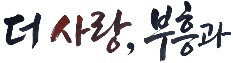 더 사랑, 부흥과